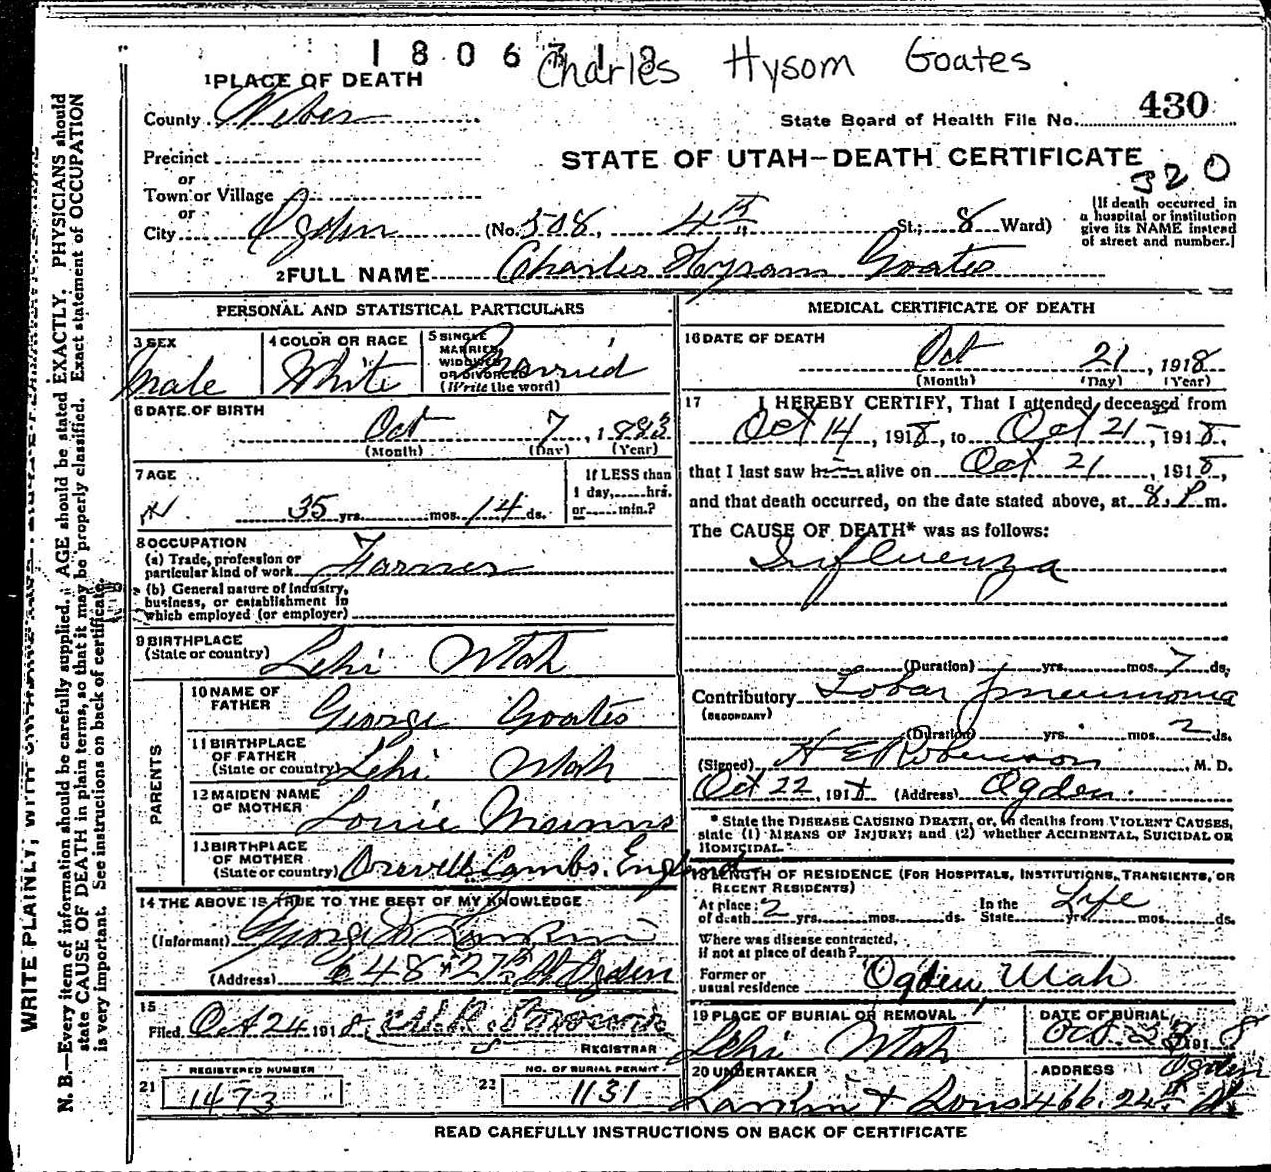 180671 8 Charles Hysom Goates
1 PLACE OF DEATH
County Weber
State Board of Health File No. 430
Precinct
STATE OF UTAH—DEATH CERTIFICATE
320
or
Town or Village
or
City Ogden (No. 508, 4th St.; 8 Ward)
(If death occurred in a hospital or institution give its NAME instead of street and number.)
2 FULL NAME Charles Hyrum Goates
PERSONAL AND STATISTICAL PARTICULARS
3 SEX Male
4 COLOR OR RACE White
5 SINGLE MARRIED, WIDOWED OR DIVORCED (Write the word) Married
6 DATE OF BIRTH
Oct 7, 1883
(Month) (Day) (Year)
7 AGE
35 yrs. mos. 14 ds.
If LESS than 1 day, hrs. or min.?
8 OCCUPATION
(a) Trade, profession or particular kind of work Farmer
(b) General nature of industry, business, or establishment in which employed (or employer)
9 BIRTHPLACE
(State or country) Lehi Utah
PARENTS
10 NAME OF FATHER George Goates
11 BIRTHPLACE OF FATHER (State or country) Lehi Utah
12 MAIDEN NAME OF MOTHER Louie Munns
13 BIRTHPLACE OF MOTHER (State or country) Orwell Cambs. England
14 THE ABOVE IS TRUE TO THE BEST OF MY KNOWLEDGE
(Informant) George D Larkin
(Address) 648-27th St Ogden
15
Filed Oct 24 1918
REGISTRAR
REGISTERED NUMBER
21 1473
NO. OF BURIAL PERMIT
22 1131
MEDICAL CERTIFICATE OF DEATH
16 DATE OF DEATH
Oct 21, 1918
(Month) (Day) (Year)
17 I HEREBY CERTIFY, That I attended deceased from
Oct 14, 1918, to Oct 21 - 1918,
that I last saw him alive on Oct 21, 1918,
and that death occurred, on the date stated above, at 8. P m.
The CAUSE OF DEATH* was as follows:
Influenza
(Duration) yrs. mos. 7 ds.
Contributory Lobar Pneumonia
(SECONDARY)
(Duration) yrs. mos. 2 ds.
(Signed) H E Robinson, M. D.
Oct 22, 1918 (Address) Ogden.
* State the DISEASE CAUSING DEATH, or, in deaths from VIOLENT CAUSES, state (1) MEANS OF INJURY; and (2) whether ACCIDENTAL, SUICIDAL OR HOMICIDAL.
LENGTH OF RESIDENCE (FOR HOSPITALS, INSTITUTIONS, TRANSIENTS, OR RECENT RESIDENTS)
At place of death 2 yrs. mos. ds. In the State Life yrs. mos. ds.
Where was disease contracted,
if not at place of death?
Former or usual residence Ogden, Utah
19 PLACE OF BURIAL OR REMOVAL
Lehi Utah
DATE OF BURIAL
Oct. 23 1918
20 UNDERTAKER
Larkin & Sons
ADDRESS Ogden
466. 24th St
READ CAREFULLY INSTRUCTIONS ON BACK OF CERTIFICATE
WRITE PLAINLY, WITH
N. B.—Every item of information should be carefully supplied. AGE should be stated EXACTLY. PHYSICIANS should
state CAUSE OF DEATH in plain terms, so that it may be properly classified. Exact statement of OCCUPATION
is very important. See instructions on back of certificate.